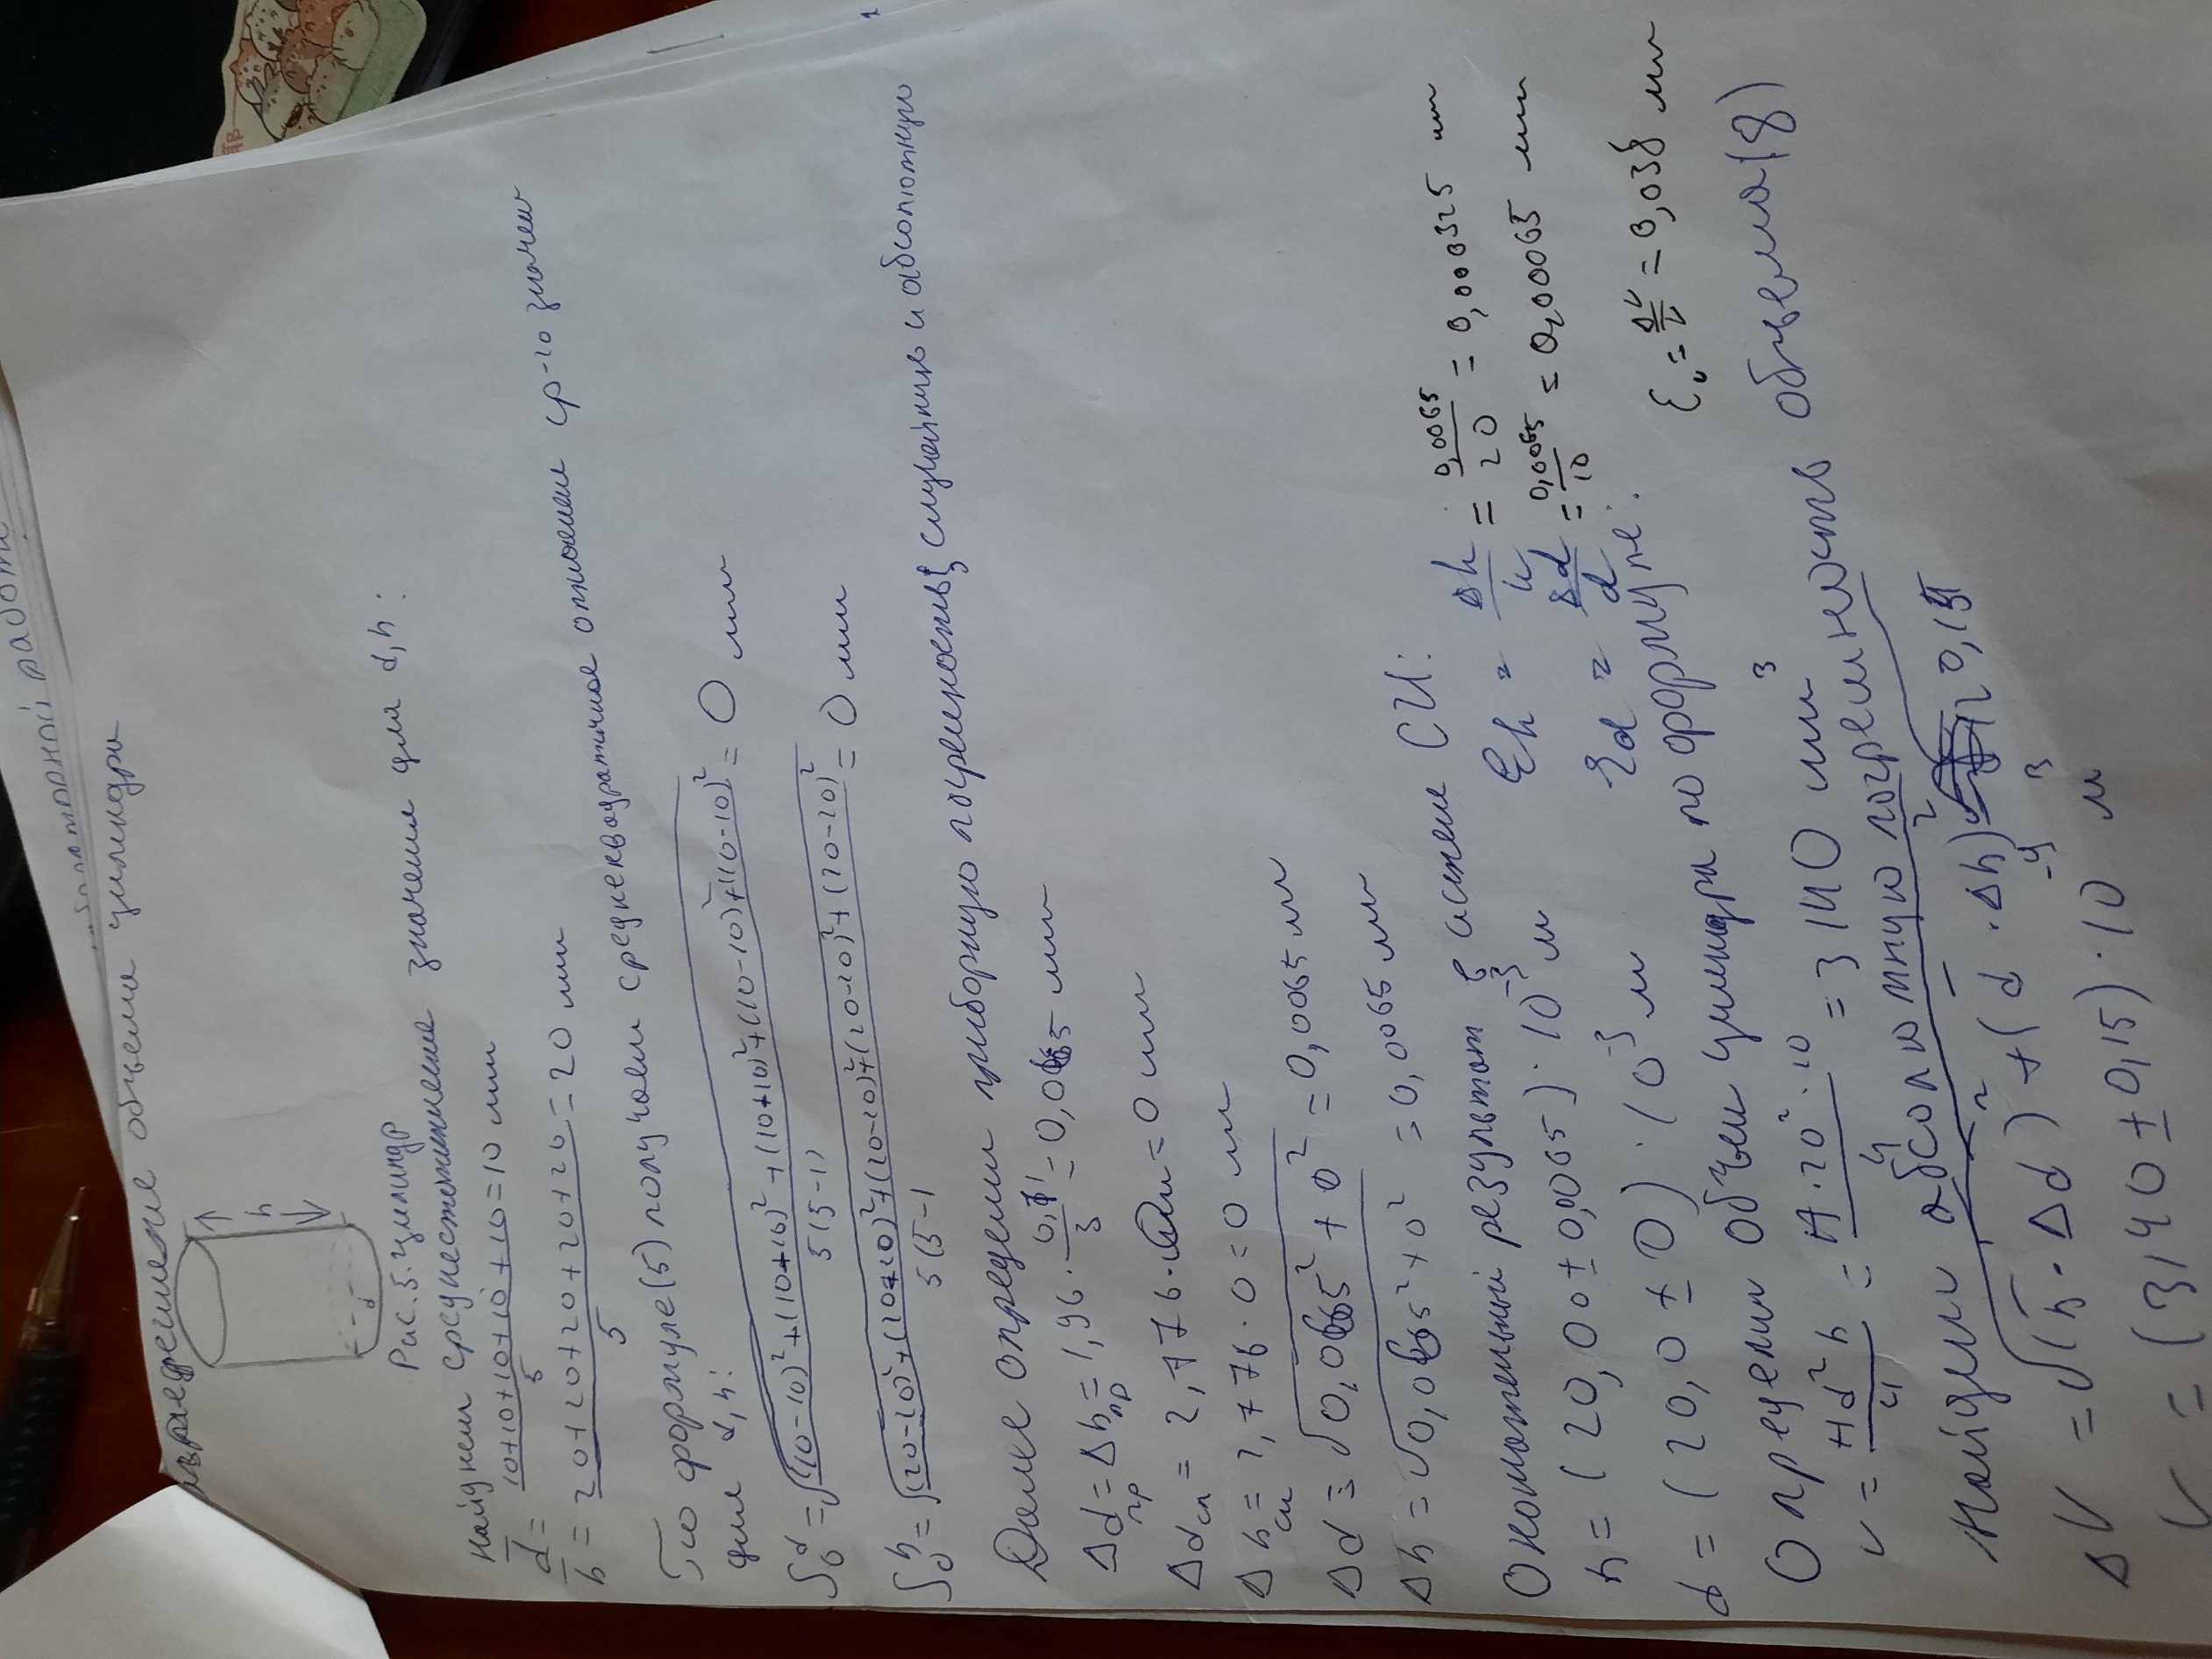 лабораторной работе
определение объема цилиндра
h
d
Рис. 5. Цилиндр
Найднем среднестатические значения для d, h:
d̅ = (10+10+10+10+10)/5 = 10 мм
h̅ = (20+20+20+20+20)/5 = 20 мм
По формуле (5) получаем среднеквадратичное отклонение ср-го значен
для d, h:
S₀ᵈ = √((10-10)²+(10+10)²+(10+10)²+(10-10)²+(10-10)²)/5(5-1) = 0 мм
S₀ʰ = √((20-20)²+(20+20)²+(20-20)²+(20-20)²+(20-20)²)/5(5-1 = 0 мм
Далее определим приборную погрешность, случайную и абсолютную
Δdпр = Δhпр = 1,96 · 0,01/3 = 0,0065 мм
Δdсл = 2,776 · 0 = 0 мм
Δhсл = 2,776 · 0 = 0 мм
Δd = √(0,0065² + 0²) = 0,0065 мм
Δh = √(0,0065² + 0²) = 0,0065 мм
Окончательный результат в системе СИ:
h = (20,00 ± 0,0065) · 10⁻³ м
εh = Δh/h = 0,0065/20 = 0,000325 мм
d = (20,0 ± 0) · 10⁻³ м
εd = Δd/d = 0,0065/10 = 0,00065 мм
Определим объем цилиндра по формуле:
εv = ΔV/V = 0,038 мм
V = πd²h/4 = π·20²·10/4 = 3140 мм³
Найдем абсолютную погрешность объема (8)
ΔV = √((h̅ · Δd)² + (d̅ · Δh)²) = 0,15
V = (3,40 ± 0,15) · 10⁻⁹ м³